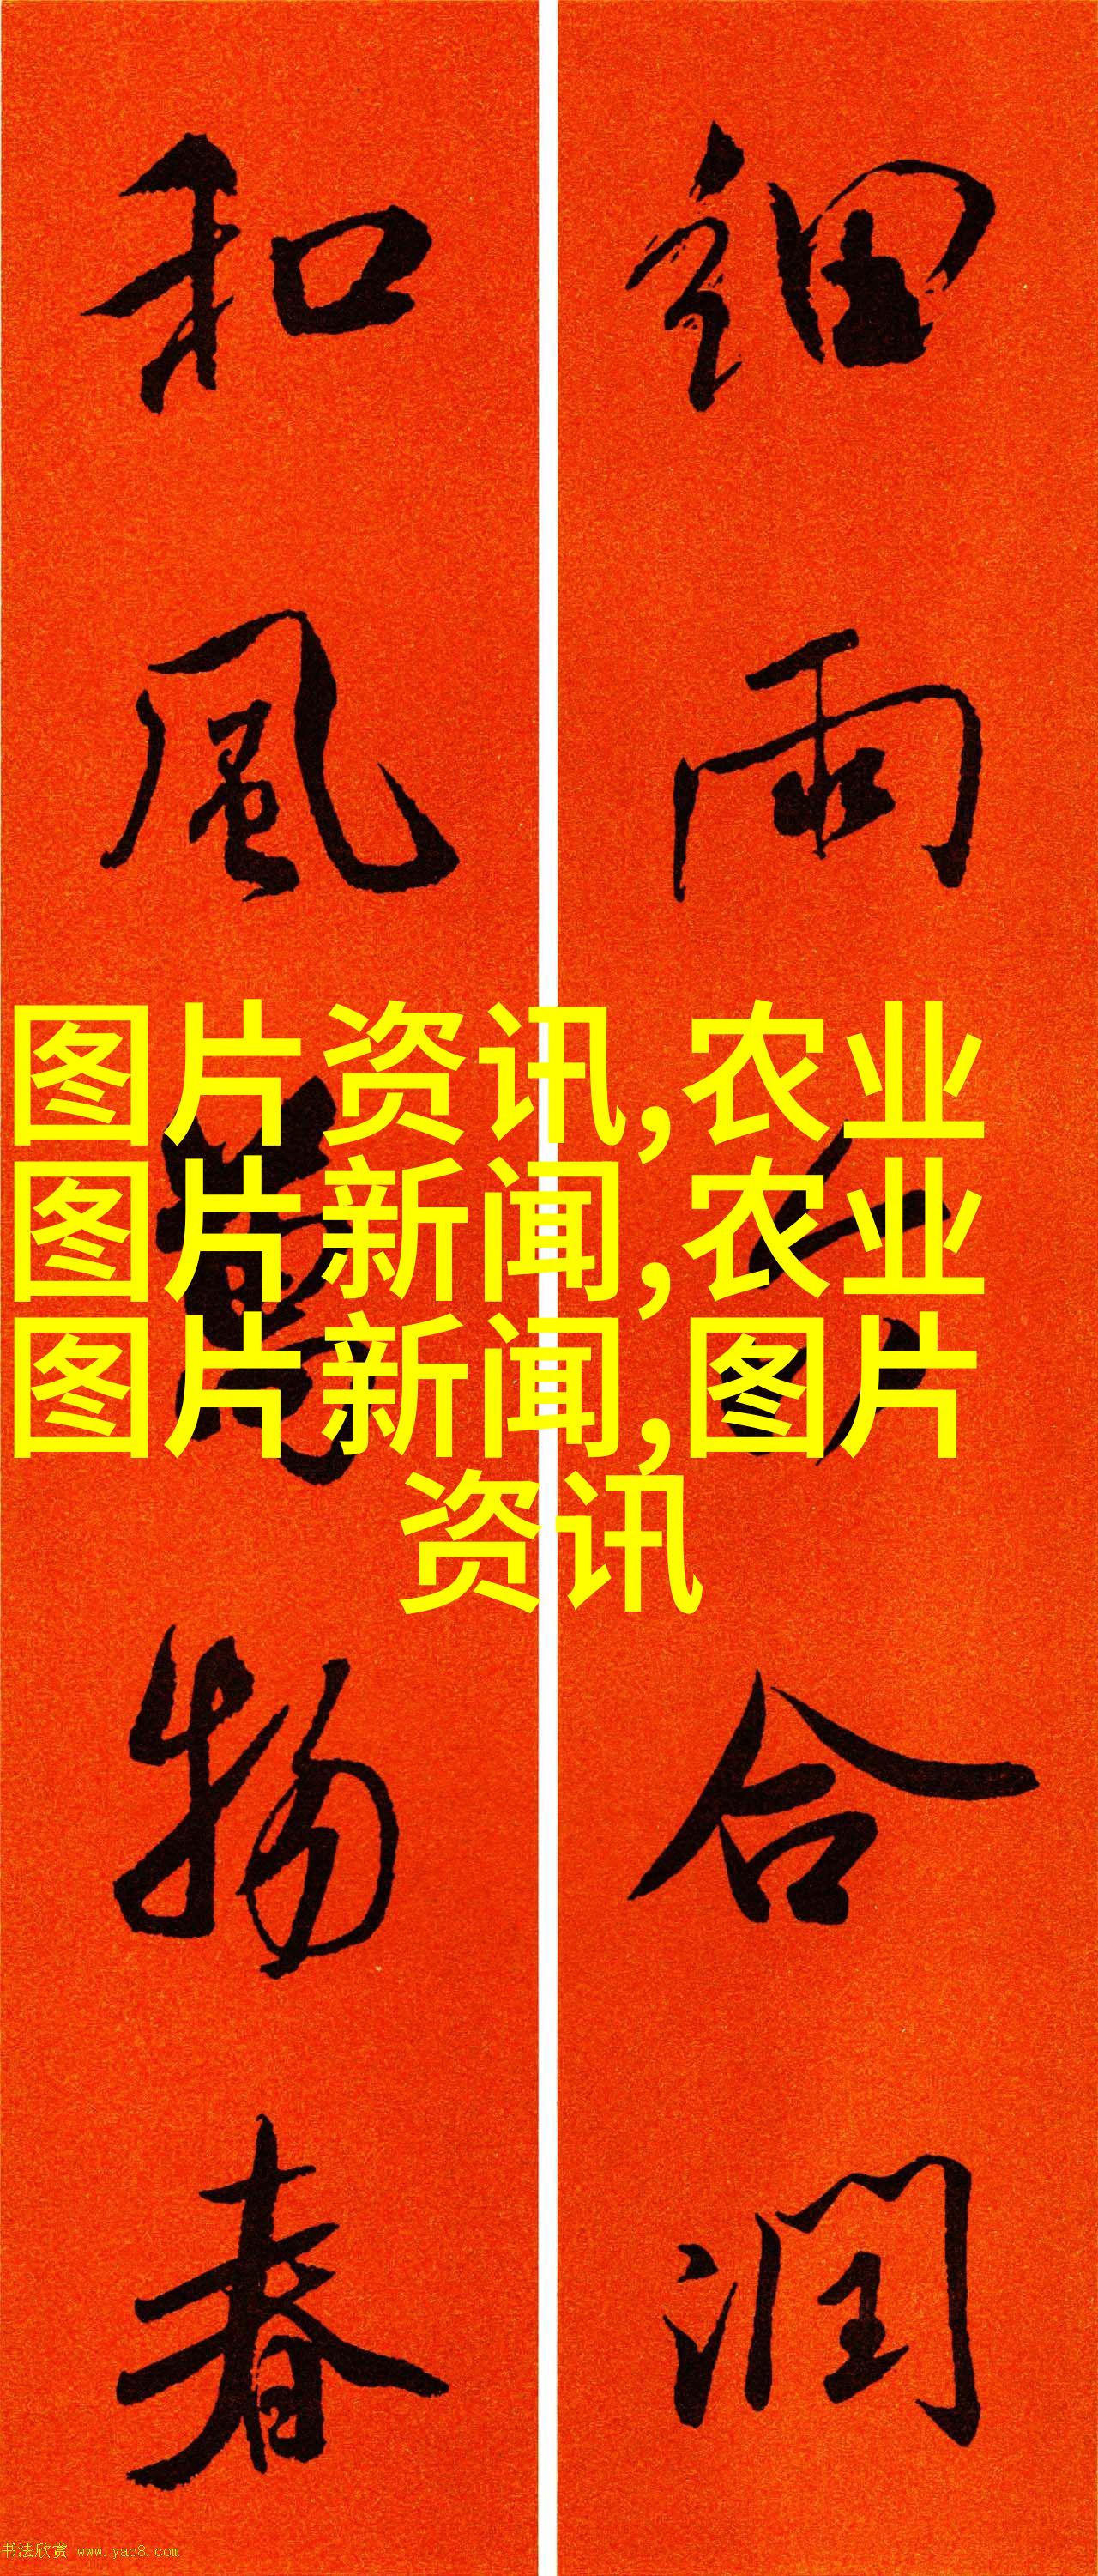 細雨六合润
和風萬物春
图片资讯,农业
图片新闻,农业
图片新闻,图片
资讯
书法欣赏 www.yac8.com